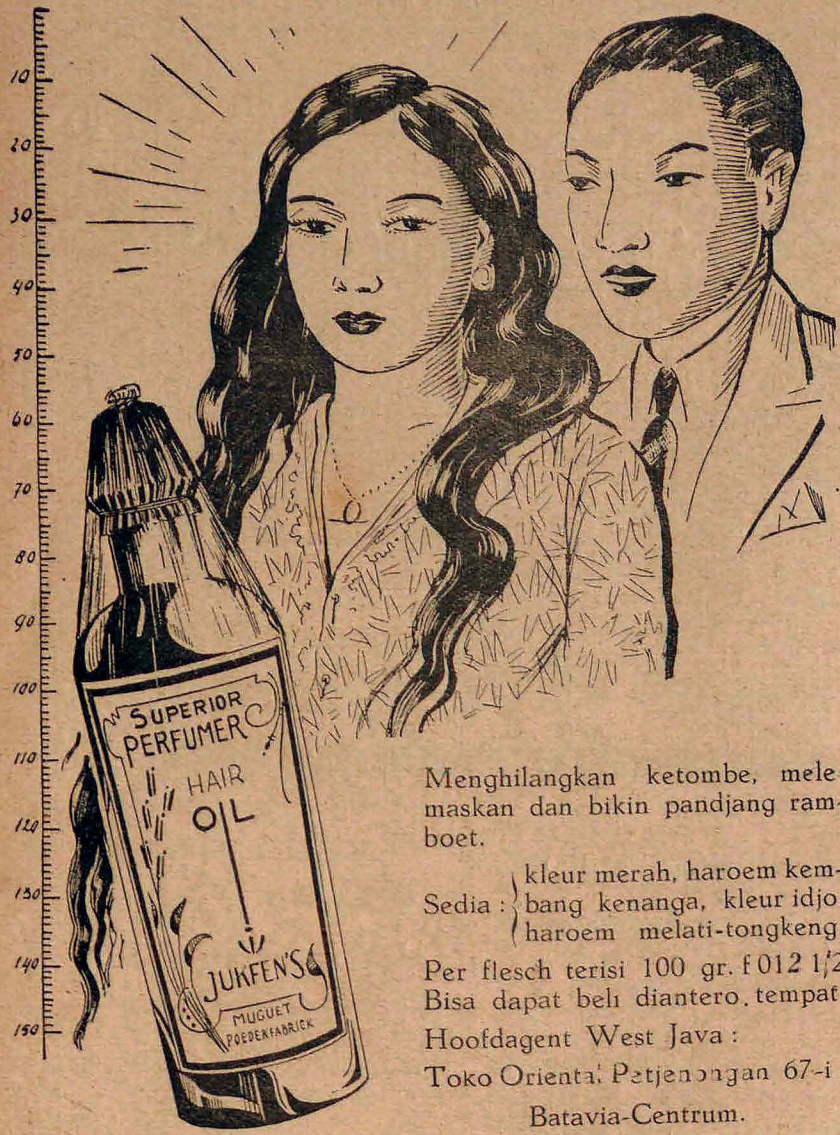 10
20
30
40
50
60
70
80
90
100
110
120
130
140
150
SUPERIOR
PERFUMER
HAIR
OIL
JUKFEN'S
MUGUET
POEDERFABRIEK
Menghilangkan ketombe, mele
maskan dan bikin pandjang ram-
boet.
kleur merah, haroem kem-
Sedia : bang kenanga, kleur idjo
haroem melati-tongkeng
Per flesch terisi 100 gr. f 012 1/2
Bisa dapat beli diantero. tempat
Hoofdagent West Java :
Toko Oriental 67-i
Batavia-Centrum.